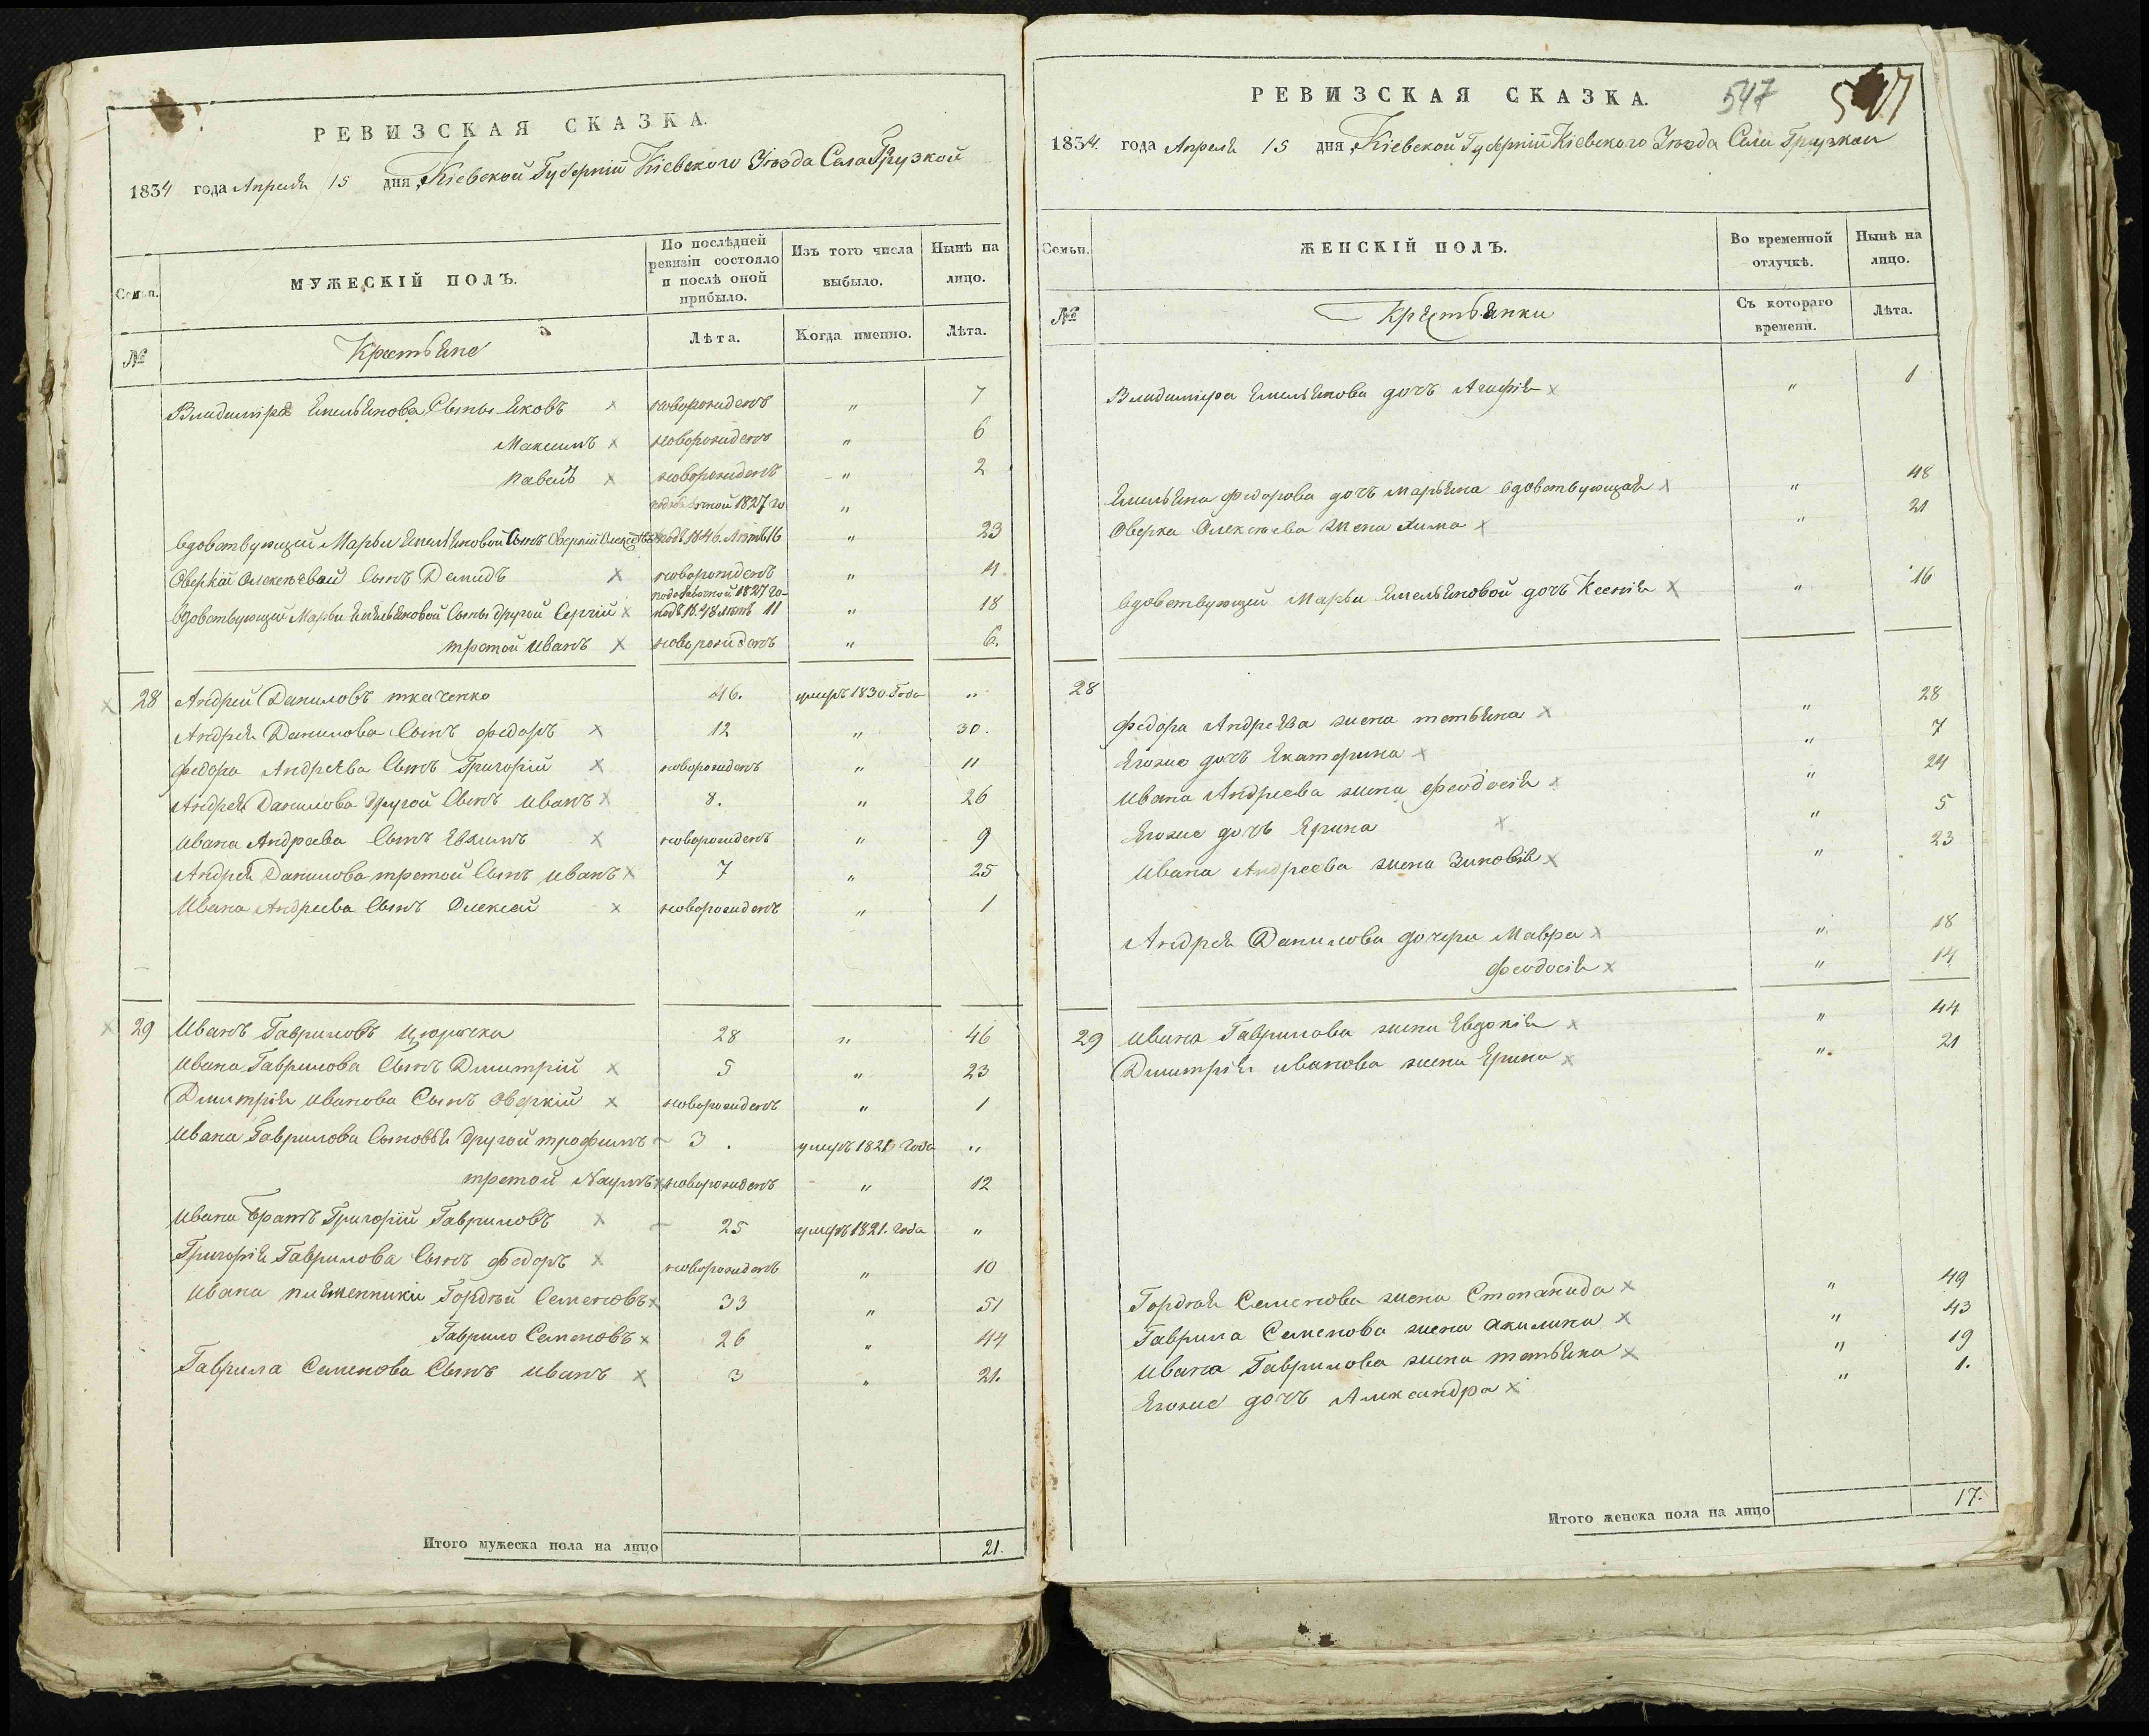 РЕВИЗСКАЯ СКАЗКА.
1834 года Апреля 15 дня, Кіевской Губерніи Кіевского Уѣзда Села Грузкой
Семьи.
МУЖЕСКІЙ ПОЛЪ.
По послѣдней ревизіи состояло и послѣ оной прибыло.
Изъ того числа выбыло.
Нынѣ на лицо.
№
Крестьяне
Лѣта.
Когда именно.
Лѣта.
Владиміра Емельянова Сыны Яковъ х новорожденъ " 7
Максимъ х новорожденъ " 6
Павелъ х новорожденъ " 2
1827 го "
вдовствующей Марьи Емельяновой Сынъ Оверкій подъ № 46. Лѣтъ 16 " 23
Оверкія Олексѣева Сынъ Демидъ х новорожденъ " 4
1827 го
вдовствующей Марьи Емельяновой Сыны другой Сергій х подъ № 48 лѣтъ 11 " 18
третой Иванъ х новорожденъ " 6.
х 28 Андрей Даниловъ ткаченко 46. умеръ 1830 Года "
Андрея Данилова Сынъ федоръ х 12 " 30.
федора Андреева Сынъ Григорій х новорожденъ " 11
Андрея Данилова другой Сынъ Иванъ х 8. " 26
Ивана Андреева Сынъ Евхимъ х новорожденъ " 9
Андрея Данилова третой Сынъ Иванъ х 7 " 25
Ивана Андреева Сынъ Олексей х новорожденъ " 1
х 29 Иванъ Гавриловъ Цюрычка 28 " 46
Ивана Гаврилова Сынъ Дмитрій х 5 " 23
Дмитрія Иванова Сынъ Оверкій х новорожденъ " 1
Ивана Гаврилова Сыновья другой трофимъ 3. умеръ 1821 Года "
третой Наумъ х новорожденъ " 12
Ивана братъ Григорій Гавриловъ х 25 умеръ 1821. Года "
Григорія Гаврилова Сынъ федоръ х новорожденъ " 10
Ивана племенники Гордѣй Семеновъ х 33 " 51
Гаврило Семеновъ х 26 " 44
Гаврила Семенова Сынъ Иванъ х 3 " 21.
Итого мужеска пола на лицо 21.
РЕВИЗСКАЯ СКАЗКА. 547
1834 года Апреля 15 дня, Кіевской Губерніи Кіевского Уѣзда Села Грузкой
Семьи.
ЖЕНСКІЙ ПОЛЪ.
Во временной отлучкѣ.
Нынѣ на лицо.
№
Крестьянки
Съ котораго времени.
Лѣта.
Владиміра Емельянова дочь Агафія х " 1
Емельяна федорова дочь Марьяна вдовствующая х " 48
Оверка Олексѣева жена Анна х " 21
вдовствующей Марьи Емельяновой дочь Ксенія х " 16
28
федора Андреева жена татьяна х " 28
Егоже дочь Екатерина х " 7
Ивана Андреева жена феодосія х " 24
Егоже дочь Ярина х " 5
Ивана Андреева жена Зиновія х " 23
Андрея Данилова дочери Мавра х " 18
феодосія х " 14
29 Ивана Гаврилова жена Евдокія х " 44
Дмитрія иванова жена Ярина х " 21
Гордѣя Семенова жена Степанида х " 49
Гаврила Семенова жена акилина х " 43
Ивана Гаврилова жена татьяна х " 19
Егоже дочь Александра х " 1.
Итого женска пола на лицо 17.